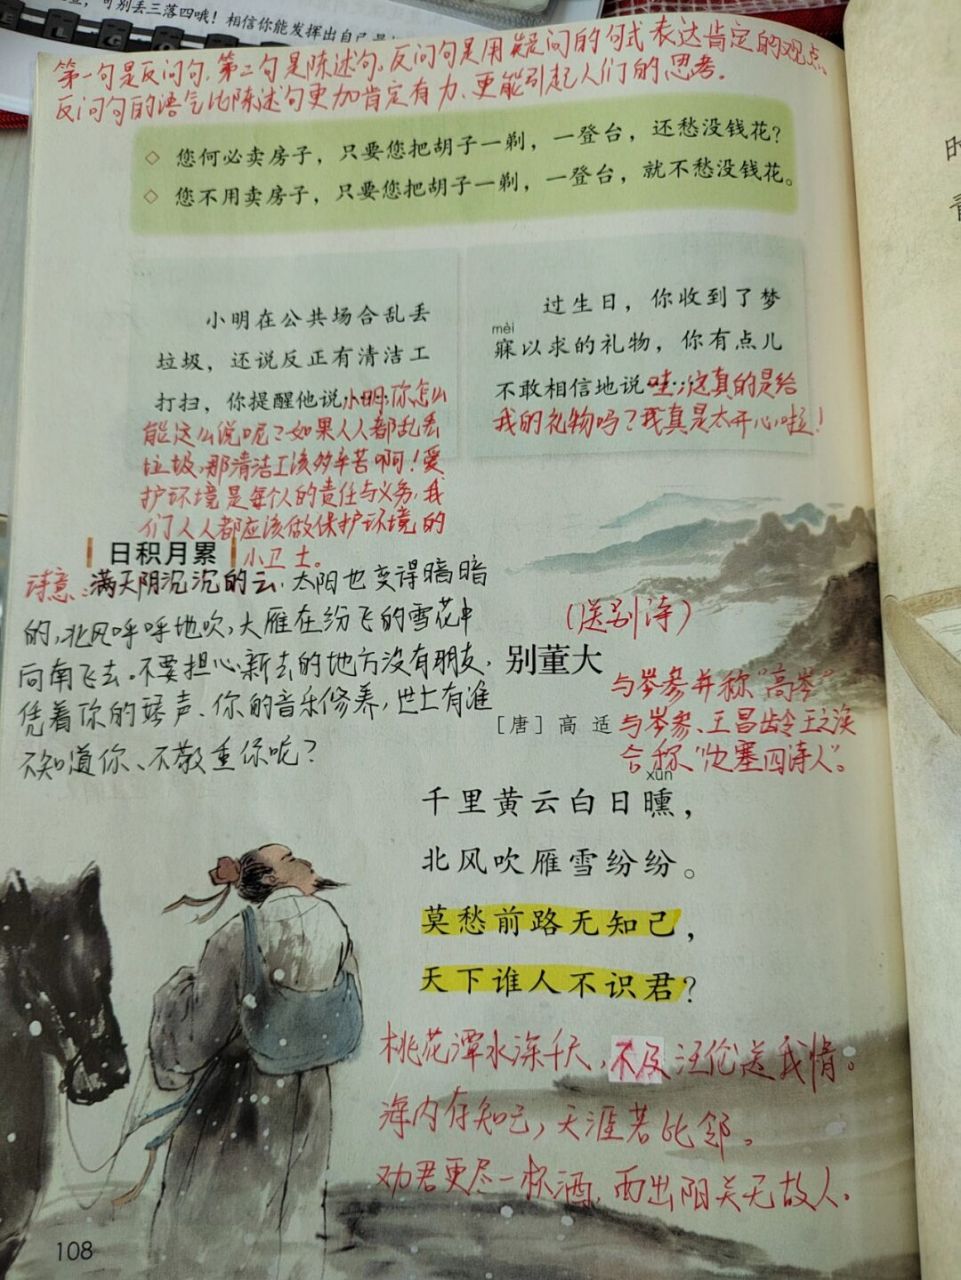 可别丢三落四哦！相信你能发挥出自己
第一句是反问句，第二句是陈述句。反问句是用疑问的句式表达肯定的观点。
反问句的语气比陈述句更加肯定有力、更能引起人们的思考。
◇ 您何必卖房子，只要您把胡子一剃，一登台，还愁没钱花？
◇ 您不用卖房子，只要您把胡子一剃，一登台，就不愁没钱花。
小明在公共场合乱丢
垃圾，还说反正有清洁工
打扫，你提醒他说……小明，你怎么
能这么说呢？如果人人都乱丢
垃圾，那清洁工该多辛苦啊！爱
护环境是每个人的责任与义务，我
们人人都应该做保护环境的
小卫士。
过生日，你收到了梦
mèi
寐以求的礼物，你有点儿
不敢相信地说……哇，这真的是给
我的礼物吗？我真是太开心啦！
日积月累
诗意：满天阴沉沉的云，太阳也变得暗暗
的，北风呼呼地吹，大雁在纷飞的雪花中
向南飞去。不要担心新去的地方没有朋友，
凭着你的琴声、你的音乐修养，世上有谁
不知道你、不敬重你呢？
（送别诗）
别董大
［唐］高 适
与岑参并称“高岑”
与岑参、王昌龄、王之涣
合称“边塞四诗人”。
xūn
千里黄云白日曛，
北风吹雁雪纷纷。
莫愁前路无知己，
天下谁人不识君？
桃花潭水深千尺，不及汪伦送我情。
海内存知己，天涯若比邻。
劝君更尽一杯酒，西出阳关无故人。
108